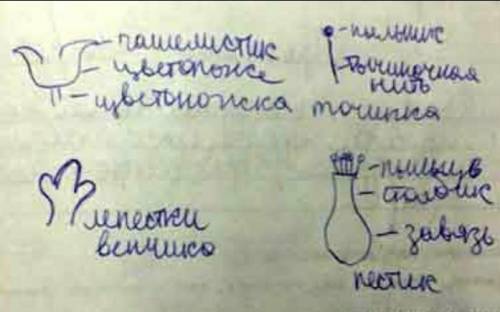 чашелистик
цветоложе
цветоножка
пыльник
тычиночная
нить
точинка
лепестки
венчика
столбик
завязь
пестик